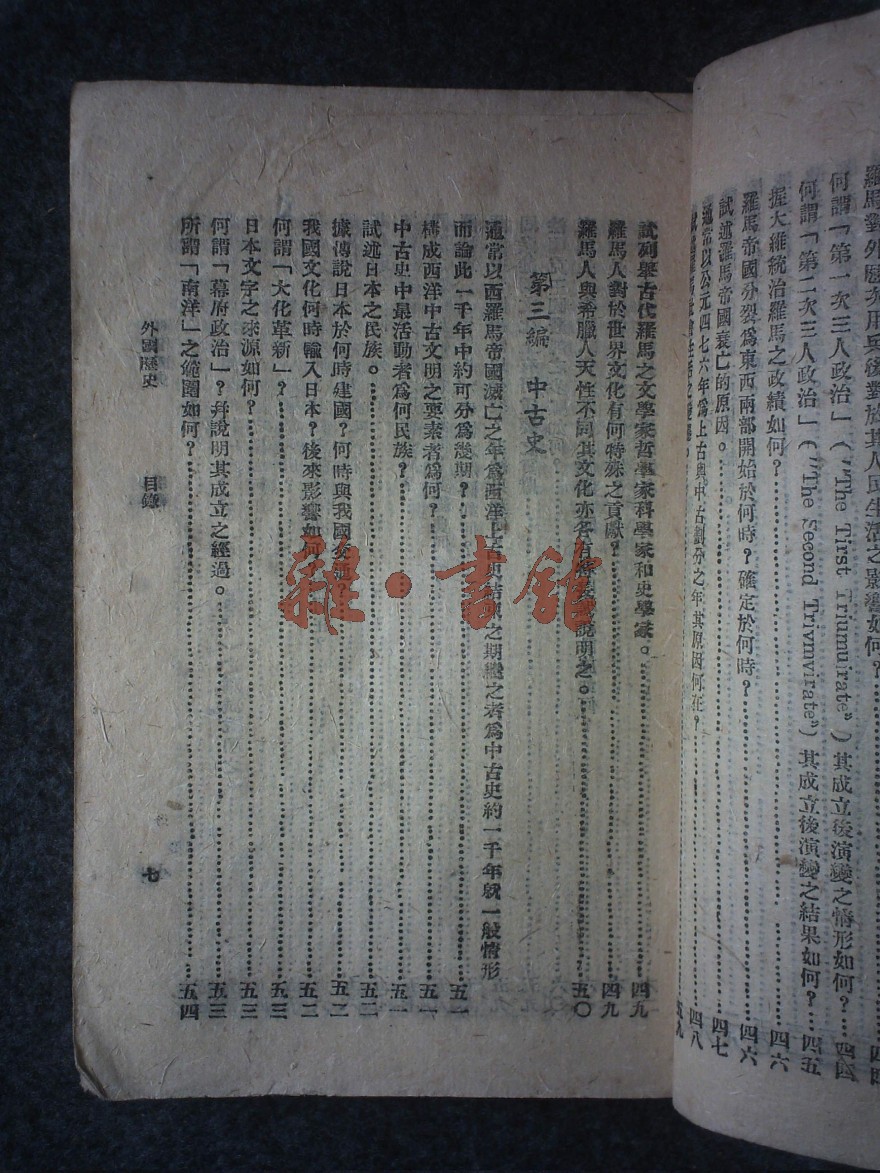 羅馬對外歷次用兵後對於其人民生活之影響如何?…四四
何謂「第一次三人政治」(“The Tirst Triumuirate”)其成立後演變之情形如何?…四四
何謂「第二次三人政治」(“The Second Trivmvirate”)其成立後演變之結果如何?…四五
握大維統治羅馬之政績如何?…四六
羅馬帝國分裂爲東西兩部開始於何時?確定於何時?…四六
試述羅馬帝國衰亡的原因。…四七
通常以公元四七六年爲上古與中古劃分之年其原因何在?…四八
試列舉古代羅馬之文學家哲學家科學家和史學家。…四九
羅馬人對於世界文化有何特殊之貢獻?…四九
羅馬人與希臘人天性不同其文化亦各有特長試說明之。…五〇
第三編 中古史
通常以西羅馬帝國滅亡之年爲西洋上古史結束之期繼之者爲中古史約一千年就一般情形
而論此一千年中約可分爲幾期?…五一
構成西洋中古文明之要素者爲何?…五一
中古史中最活動者爲何民族?…五一
試述日本之民族。…五二
據傳說日本於何時建國?何時與我國交通?…五二
我國文化何時輸入日本?後來影響如何?…五二
何謂「大化革新」?…五三
日本文字之來源如何?…五三
何謂「幕府政治」?幷說明其成立之經過。…五三
所謂「南洋」之範圍如何?…五四
外國歷史 目錄 七
雜·書館